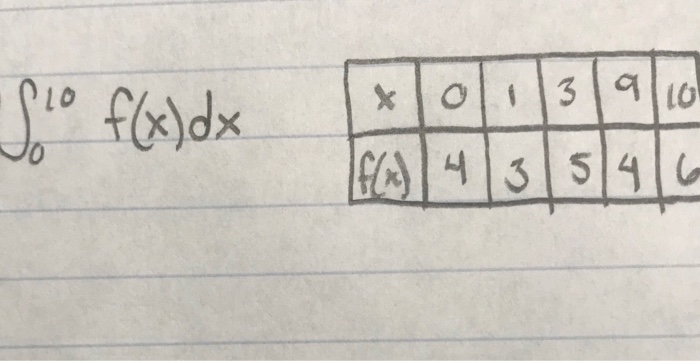 ∫₀¹⁰ f(x)dx
x 0 1 3 9 10
f(x) 4 3 5 4 6